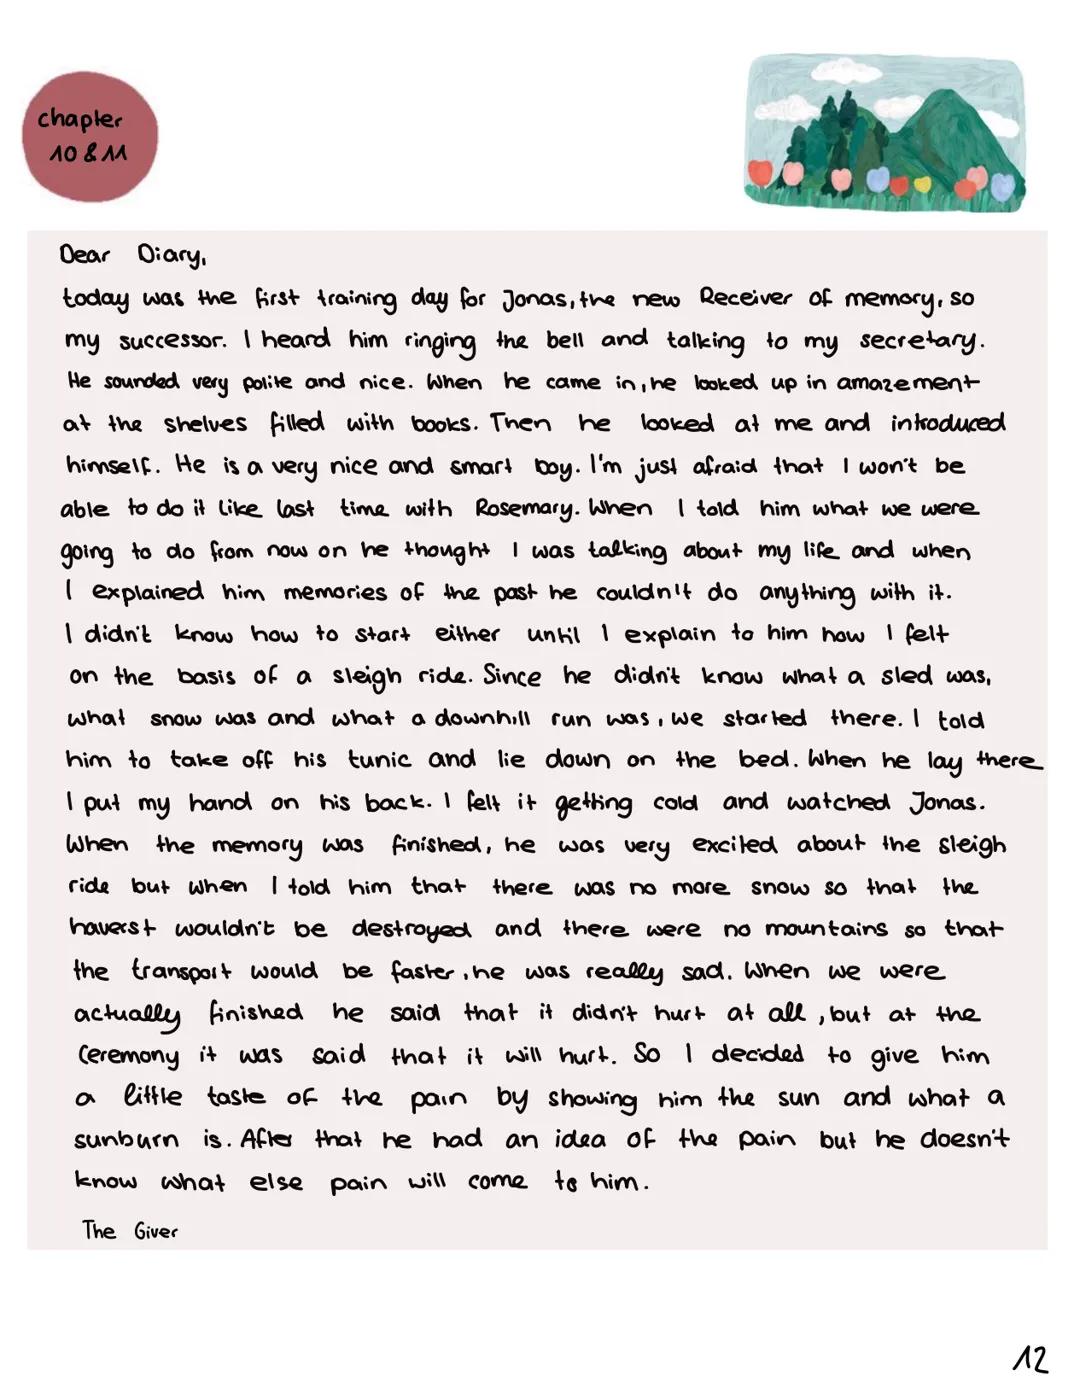 chapter
10 & 11
Dear Diary,
today was the first training day for Jonas, the new Receiver of memory, so
my successor. I heard him ringing the bell and talking to my secretary.
He sounded very polite and nice. When he came in, he looked up in amazement
at the shelves filled with books. Then he looked at me and introduced
himself. He is a very nice and smart boy. I'm just afraid that I won't be
able to do it like last time with Rosemary. When I told him what we were
going to do from now on he thought I was talking about my life and when
I explained him memories of the past he couldn't do anything with it.
I didn't know how to start either until I explain to him how I felt
on the basis of a sleigh ride. Since he didn't know what a sled was,
what snow was and what a downhill run was, we started there. I told
him to take off his tunic and lie down on the bed. When he lay there
I put my hand on his back. I felt it getting cold and watched Jonas.
When the memory was finished, he was very excited about the sleigh
ride but when I told him that there was no more snow so that the
haverst wouldn't be destroyed and there were no mountains so that
the transport would be faster, he was really sad. When we were
actually finished he said that it didn't hurt at all, but at the
Ceremony it was said that it will hurt. So I decided to give him
a little taste of the pain by showing him the sun and what a
sunburn is. After that he had an idea of the pain but he doesn't
know what else pain will come to him.
The Giver
12